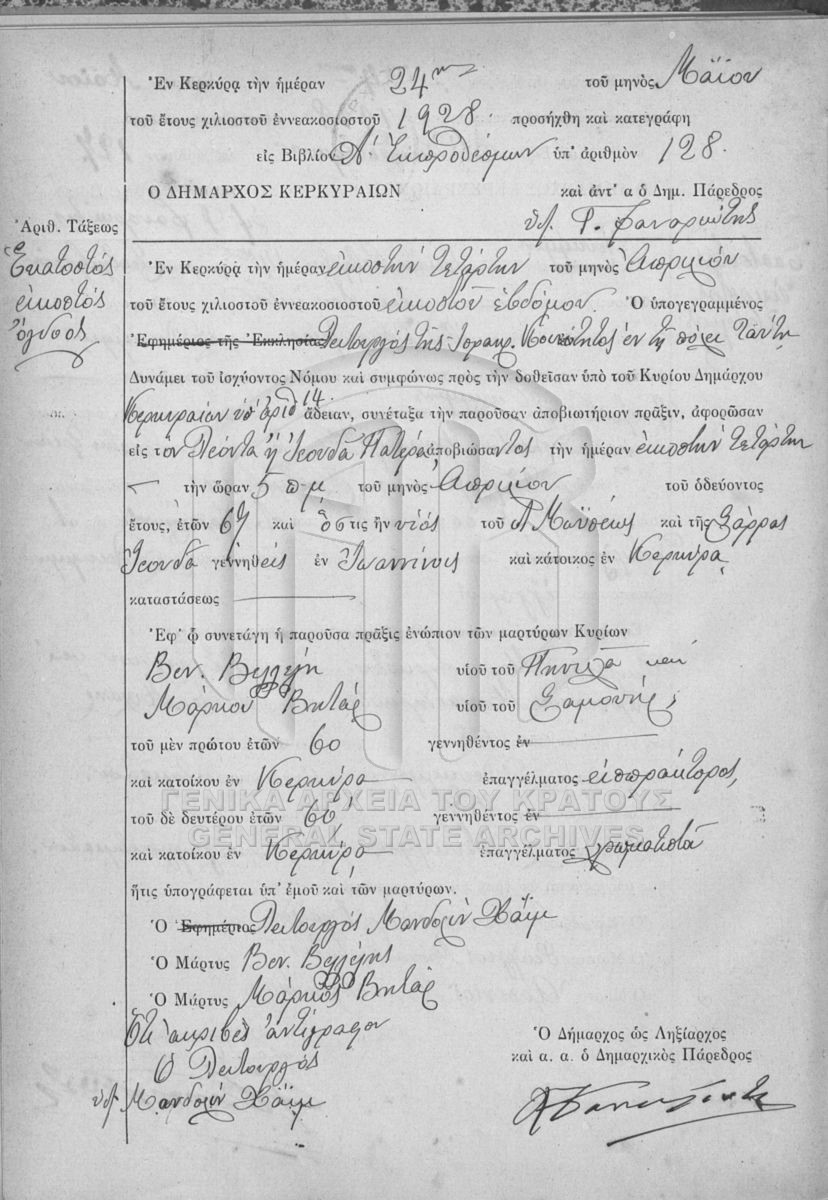 Ἐν Κερκύρᾳ τὴν ἡμέραν 24ην τοῦ μηνὸς Μαΐου
τοῦ ἔτους χιλιοστοῦ ἐννεακοσιοστοῦ 1928 προσήχθη καὶ κατεγράφη
εἰς Βιβλίον Α' Ἐκπροθέσμων ὑπ' ἀριθμὸν 128.
Ο ΔΗΜΑΡΧΟΣ ΚΕΡΚΥΡΑΙΩΝ καὶ ἀντ' α ὁ Δημ. Πάρεδρος
Ἀριθ. Τάξεως
Ἑκατοστός
εἰκοστός
ὄγδοος
Ἐν Κερκύρᾳ τὴν ἡμέραν εἰκοστὴν τετάρτην τοῦ μηνὸς Ἀπριλίου
τοῦ ἔτους χιλιοστοῦ ἐννεακοσιοστοῦ εἰκοστοῦ ἑβδόμου. Ὁ ὑπογεγραμμένος
Ἐφημέριος τῆς Ἐκκλησίας Λειτουργός τῆς Ἰσραηλ. Κοινότητος ἐν τῇ πόλει ταύτῃ
Δυνάμει τοῦ ἰσχύοντος Νόμου καὶ συμφώνως πρὸς τὴν δοθεῖσαν ὑπὸ τοῦ Κυρίου Δημάρχου
Κερκυραίων ὑπ' ἀριθ 14. ἄδειαν, συνέταξα τὴν παροῦσαν ἀποβιωτήριον πρᾶξιν, ἀφορῶσαν
εἰς τὸν Λεόντα ἢ Ἰεουδᾶ Πατέρα ἀποβιώσαντος τὴν ἡμέραν εἰκοστὴν τετάρτην
τὴν ὥραν 5 π.μ. τοῦ μηνὸς Ἀπριλίου τοῦ ὁδεύοντος
ἔτους, ἐτῶν 67 καὶ ὅστις ἦν υἱός τοῦ Μωϋσέως καὶ τῆς Σάρρας
Ἰεουδᾶ γεννηθείς ἐν Ἰωαννίνοις καὶ κάτοικος ἐν Κερκύρᾳ
καταστάσεως
Ἐφ' ᾧ συνετάγη ἡ παροῦσα πρᾶξις ἐνώπιον τῶν μαρτύρων Κυρίων
Βεν. Βελλέλη υἱοῦ τοῦ καὶ
Μάρκου Βητάλ υἱοῦ τοῦ Σαμουήλ,
τοῦ μὲν πρώτου ἐτῶν 60 γεννηθέντος ἐν
καὶ κατοίκου ἐν Κερκύρᾳ ἐπαγγέλματος εἰσπράκτορος,
τοῦ δὲ δευτέρου ἐτῶν γεννηθέντος ἐν
καὶ κατοίκου ἐν Κερκύρᾳ ἐπαγγέλματος
ΓΕΝΙΚΑ ΑΡΧΕΙΑ ΤΟΥ ΚΡΑΤΟΥΣ
GENERAL STATE ARCHIVES
ἥτις ὑπογράφεται ὑπ' ἐμοῦ καὶ τῶν μαρτύρων.
Ὁ Ἐφημέριος Λειτουργός Μανδολὴν Χάϊμ
Ὁ Μάρτυς Βεν. Βελλέλης
Ὁ Μάρτυς Μάρκος Βητάλ
Ὅτι ἀκριβὲς ἀντίγραφον
Ὁ Λειτουργός
ὑπ. Μανδολὴν Χάϊμ
Ὁ Δήμαρχος ὡς Ληξίαρχος
καὶ α. α. ὁ Δημαρχικὸς Πάρεδρος